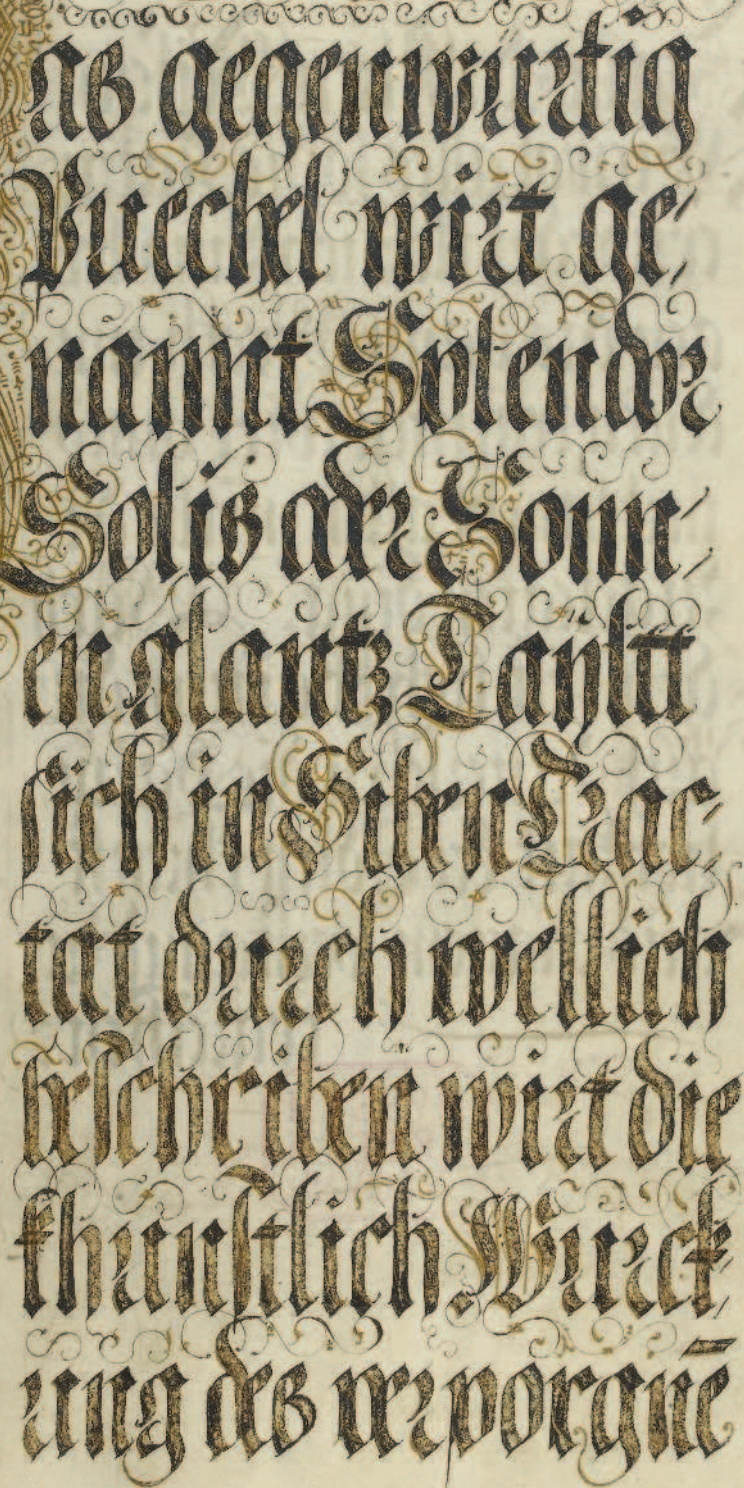 as gegenwurtig
Buechel wirt ge⸗
nannt Splendor
Solis oder Sonn⸗
en glantz Taÿltt
sich in Siben Trac⸗
tat durch wellich
beschriben wirt die
khunstlich Wurck⸗
ung des verporgnē